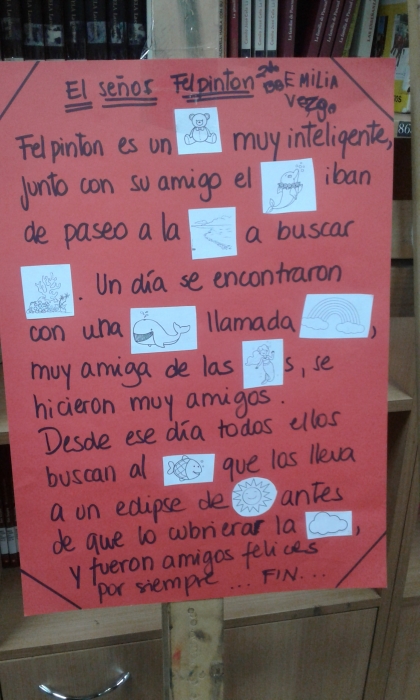 El señor Felpinton 2do EMILIA
Vezga
Felpinton es un muy inteligente,
junto con su amigo el iban
de paseo a la a buscar
. Un día se encontraron
con una llamada ,
muy amiga de las s, se
hicieron muy amigos.
Desde ese día todos ellos
buscan al que los lleva
a un eclipse de antes
de que lo cubriera la ,
y fueron amigos felices
por siempre ... FIN...
86